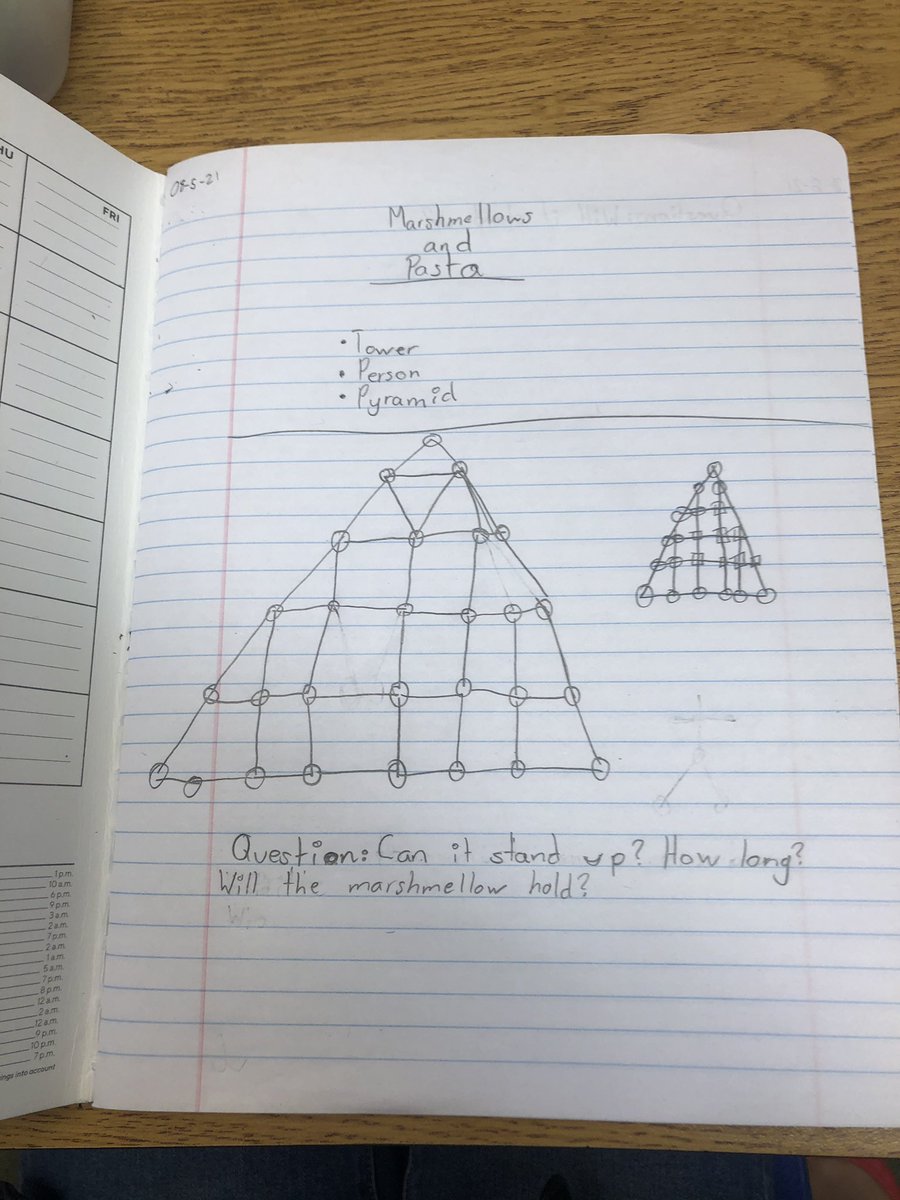 HU
FRI
08-5-21
Marshmellows
and
Pasta
• Tower
• Person
• Pyramid
Question: Can it stand up? How long?
Will the marshmellow hold?
1 p.m.
10 a.m.
6 p.m.
9 p.m.
3 a.m.
2 a.m.
7 p.m.
2 a.m.
1 a.m.
5 a.m.
7 p.m.
8 p.m.
12 a.m.
2 a.m.
12 a.m.
9 p.m.
10 p.m.
7 p.m.
ings into account